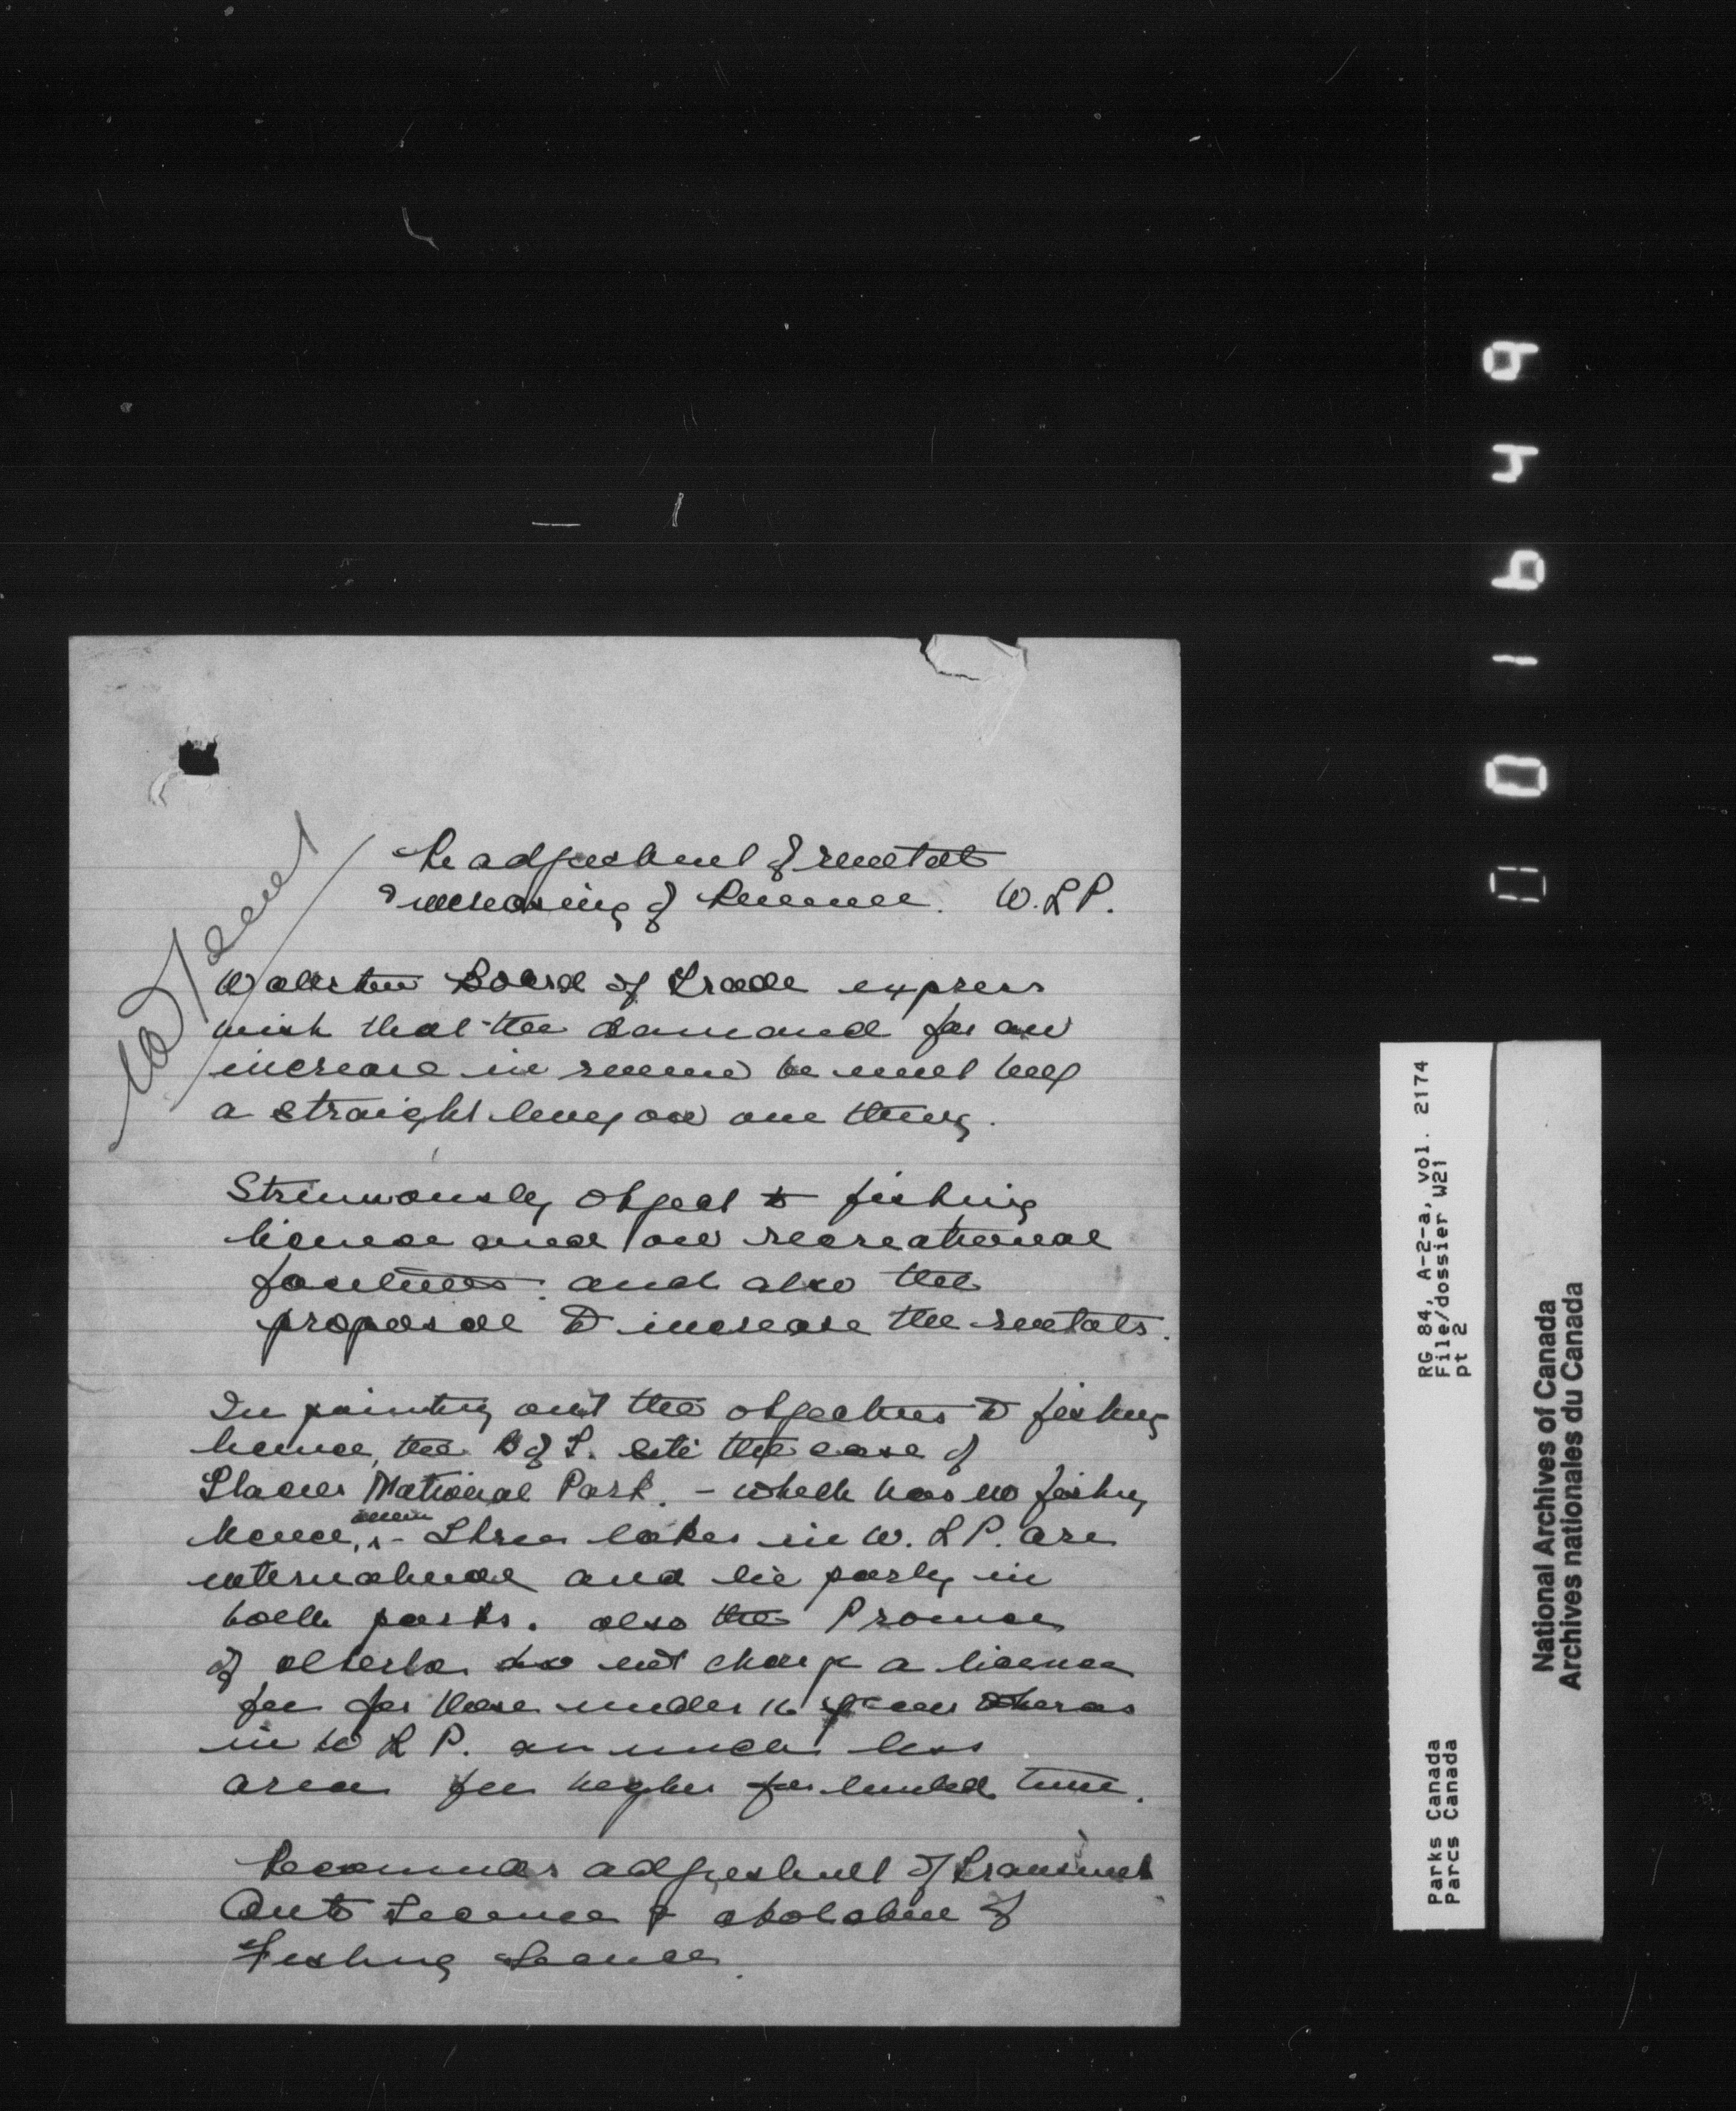 Re adjustment of rentals
& increasing of Revenue. W.L.P.
Waterton Board of Trade express
wish that the demand for an
increase in revenue be met by
a straight levy on one thing.
Strenuously object to fishing
license and on recreational
facilities. and also the
proposal to increase the rentals.
In pointing out the objections to fishing
license, the B of T. cite the case of
Glacier National Park. - which has no fishing
license, - Three lakes in W. L P. are
international and lie partly in
both parks. also the Province
of Alberta do not charge a license
fee for those under 16 years whereas
in W L P. in much less
area fee higher for limited time.
Recommends adjustment of Transient
Auto License & abolition of
Fishing License.
001649
RG 84, A-2-a, vol. 2174
File/dossier W21
pt 2
Parks Canada
Parcs Canada
National Archives of Canada
Archives nationales du Canada